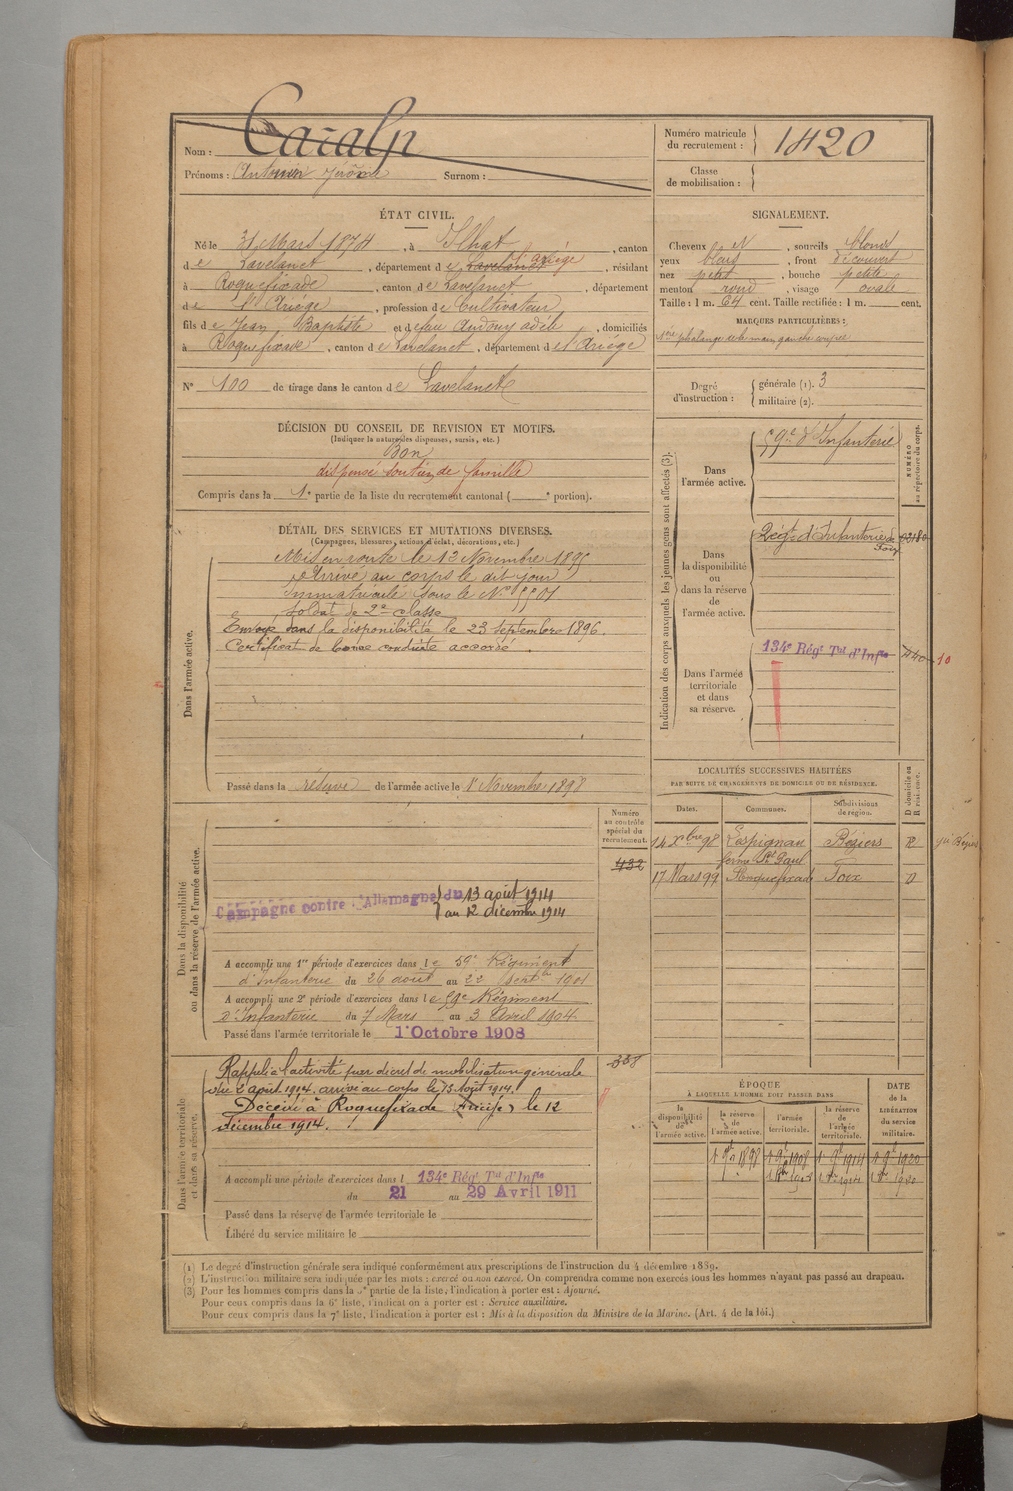 Nom : Cazalp
Prénoms : Antonin Jérôme Surnom :
Numéro matricule du recrutement : 1420
Classe de mobilisation :
ÉTAT CIVIL.
Né le 31 Mars 1874, à Ilhat, canton
de Lavelanet, département de Lavelanet l'Ariège, résidant
à Roquefixade, canton de Lavelanet, département
de l'Ariège, profession de Cultivateur
fils de Jean Baptiste et de feu Audouy Adèle, domiciliés
à Roquefixade, canton de Lavelanet, département de l'Ariège
N° 100 de tirage dans le canton de Lavelanet
SIGNALEMENT.
Cheveux N, sourcils blonds
yeux bleus, front découvert
nez petit, bouche petite
menton rond, visage ovale
Taille : 1 m. 64 cent. Taille rectifiée : 1 m. cent.
MARQUES PARTICULIÈRES :
1ère phalange main gauche coupée
Degré d'instruction : générale (1). 3
militaire (2).
DÉCISION DU CONSEIL DE REVISION ET MOTIFS.
(Indiquer la nature des dispenses, sursis, etc.)
Bon
dispensé soutien de famille
Compris dans la 1e partie de la liste du recrutement cantonal ( e portion).
Indication des corps auxquels les jeunes gens sont affectés (3).
NUMÉRO au répertoire du corps.
Dans l'armée active.
59e d'Infanterie
Dans la disponibilité ou dans la réserve de l'armée active.
Régt d'Infanterie de Foix
Dans l'armée territoriale et dans sa réserve.
134e Régt Tal d'Infie
440 10
DÉTAIL DES SERVICES ET MUTATIONS DIVERSES.
(Campagnes, blessures, actions d'éclat, décorations, etc.)
Dans l'armée active.
Mis en route le 13 Novembre 1895
Arrivé au corps le dit jour
Immatriculé sous le N° 5501
Soldat de 2e classe
Envoyé dans la disponibilité le 23 septembre 1896.
Certificat de bonne conduite accordé.
Passé dans la réserve de l'armée active le 1er Novembre 1898
LOCALITÉS SUCCESSIVES HABITÉES
PAR SUITE DE CHANGEMENTS DE DOMICILE OU DE RÉSIDENCE.
Dates. Communes. Subdivisions de région. D domicile ou R résidence.
14 Xbre 98 Lespignan ferme St Paul Béziers R
17 Mars 99 Roquefixade Foix D
Dans la disponibilité ou dans la réserve de l'armée active.
Numéro au contrôle spécial du recrutement.
432
Campagne contre l'Allemagne du 13 août 1914
au 12 décembre 1914
A accompli une 1re période d'exercices dans le 59e Régiment
d'Infanterie du 26 août au 22 Septbre 1901
A accompli une 2e période d'exercices dans le 59e Régiment
d'Infanterie du 7 Mars au 3 Avril 1904
Passé dans l'armée territoriale le 1er Octobre 1908
Dans l'armée territoriale et dans sa réserve.
338
Rappelé à l'activité par décret de mobilisation générale
du 2 août 1914. arrivé au corps le 13 août 1914.
Décédé à Roquefixade (Ariège) le 12
décembre 1914.
A accompli une période d'exercices dans l 134e Régt Tal d'Infie
du 21 au 29 Avril 1911
Passé dans la réserve de l'armée territoriale le
Libéré du service militaire le
ÉPOQUE
À LAQUELLE L'HOMME DOIT PASSER DANS
la disponibilité de l'armée active. la réserve de l'armée active. l'armée territoriale. la réserve de l'armée territoriale.
DATE de la LIBÉRATION du service militaire.
1 9bre 1898 1 9bre 1908 1 9bre 1914 1 9bre 1920
(1) Le degré d'instruction générale sera indiqué conformément aux prescriptions de l'instruction du 4 décembre 1889.
(2) L'instruction militaire sera indiquée par les mots : exercé ou non exercé. On comprendra comme non exercés tous les hommes n'ayant pas passé au drapeau.
(3) Pour les hommes compris dans la 5e partie de la liste, l'indication à porter est : Ajourné.
Pour ceux compris dans la 6e liste, l'indication à porter est : Service auxiliaire.
Pour ceux compris dans la 7e liste, l'indication à porter est : Mis à la disposition du Ministre de la Marine. (Art. 4 de la loi.)